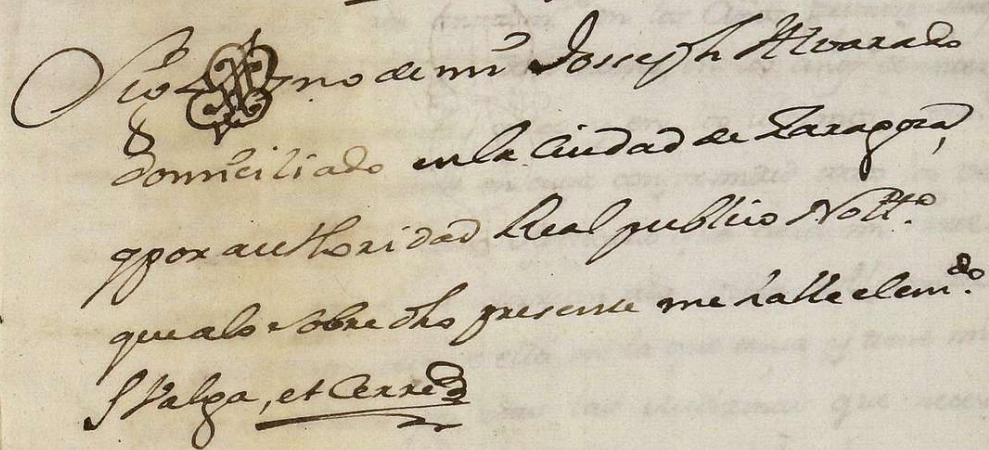 Sig no de mi Joseph Alvarado
domiciliado en la Ciudad de Zaragoza,
y por authoridad Real publico Nottº.
que a lo sobre dho presente me halle el emdo.
S Valga, et Cerre